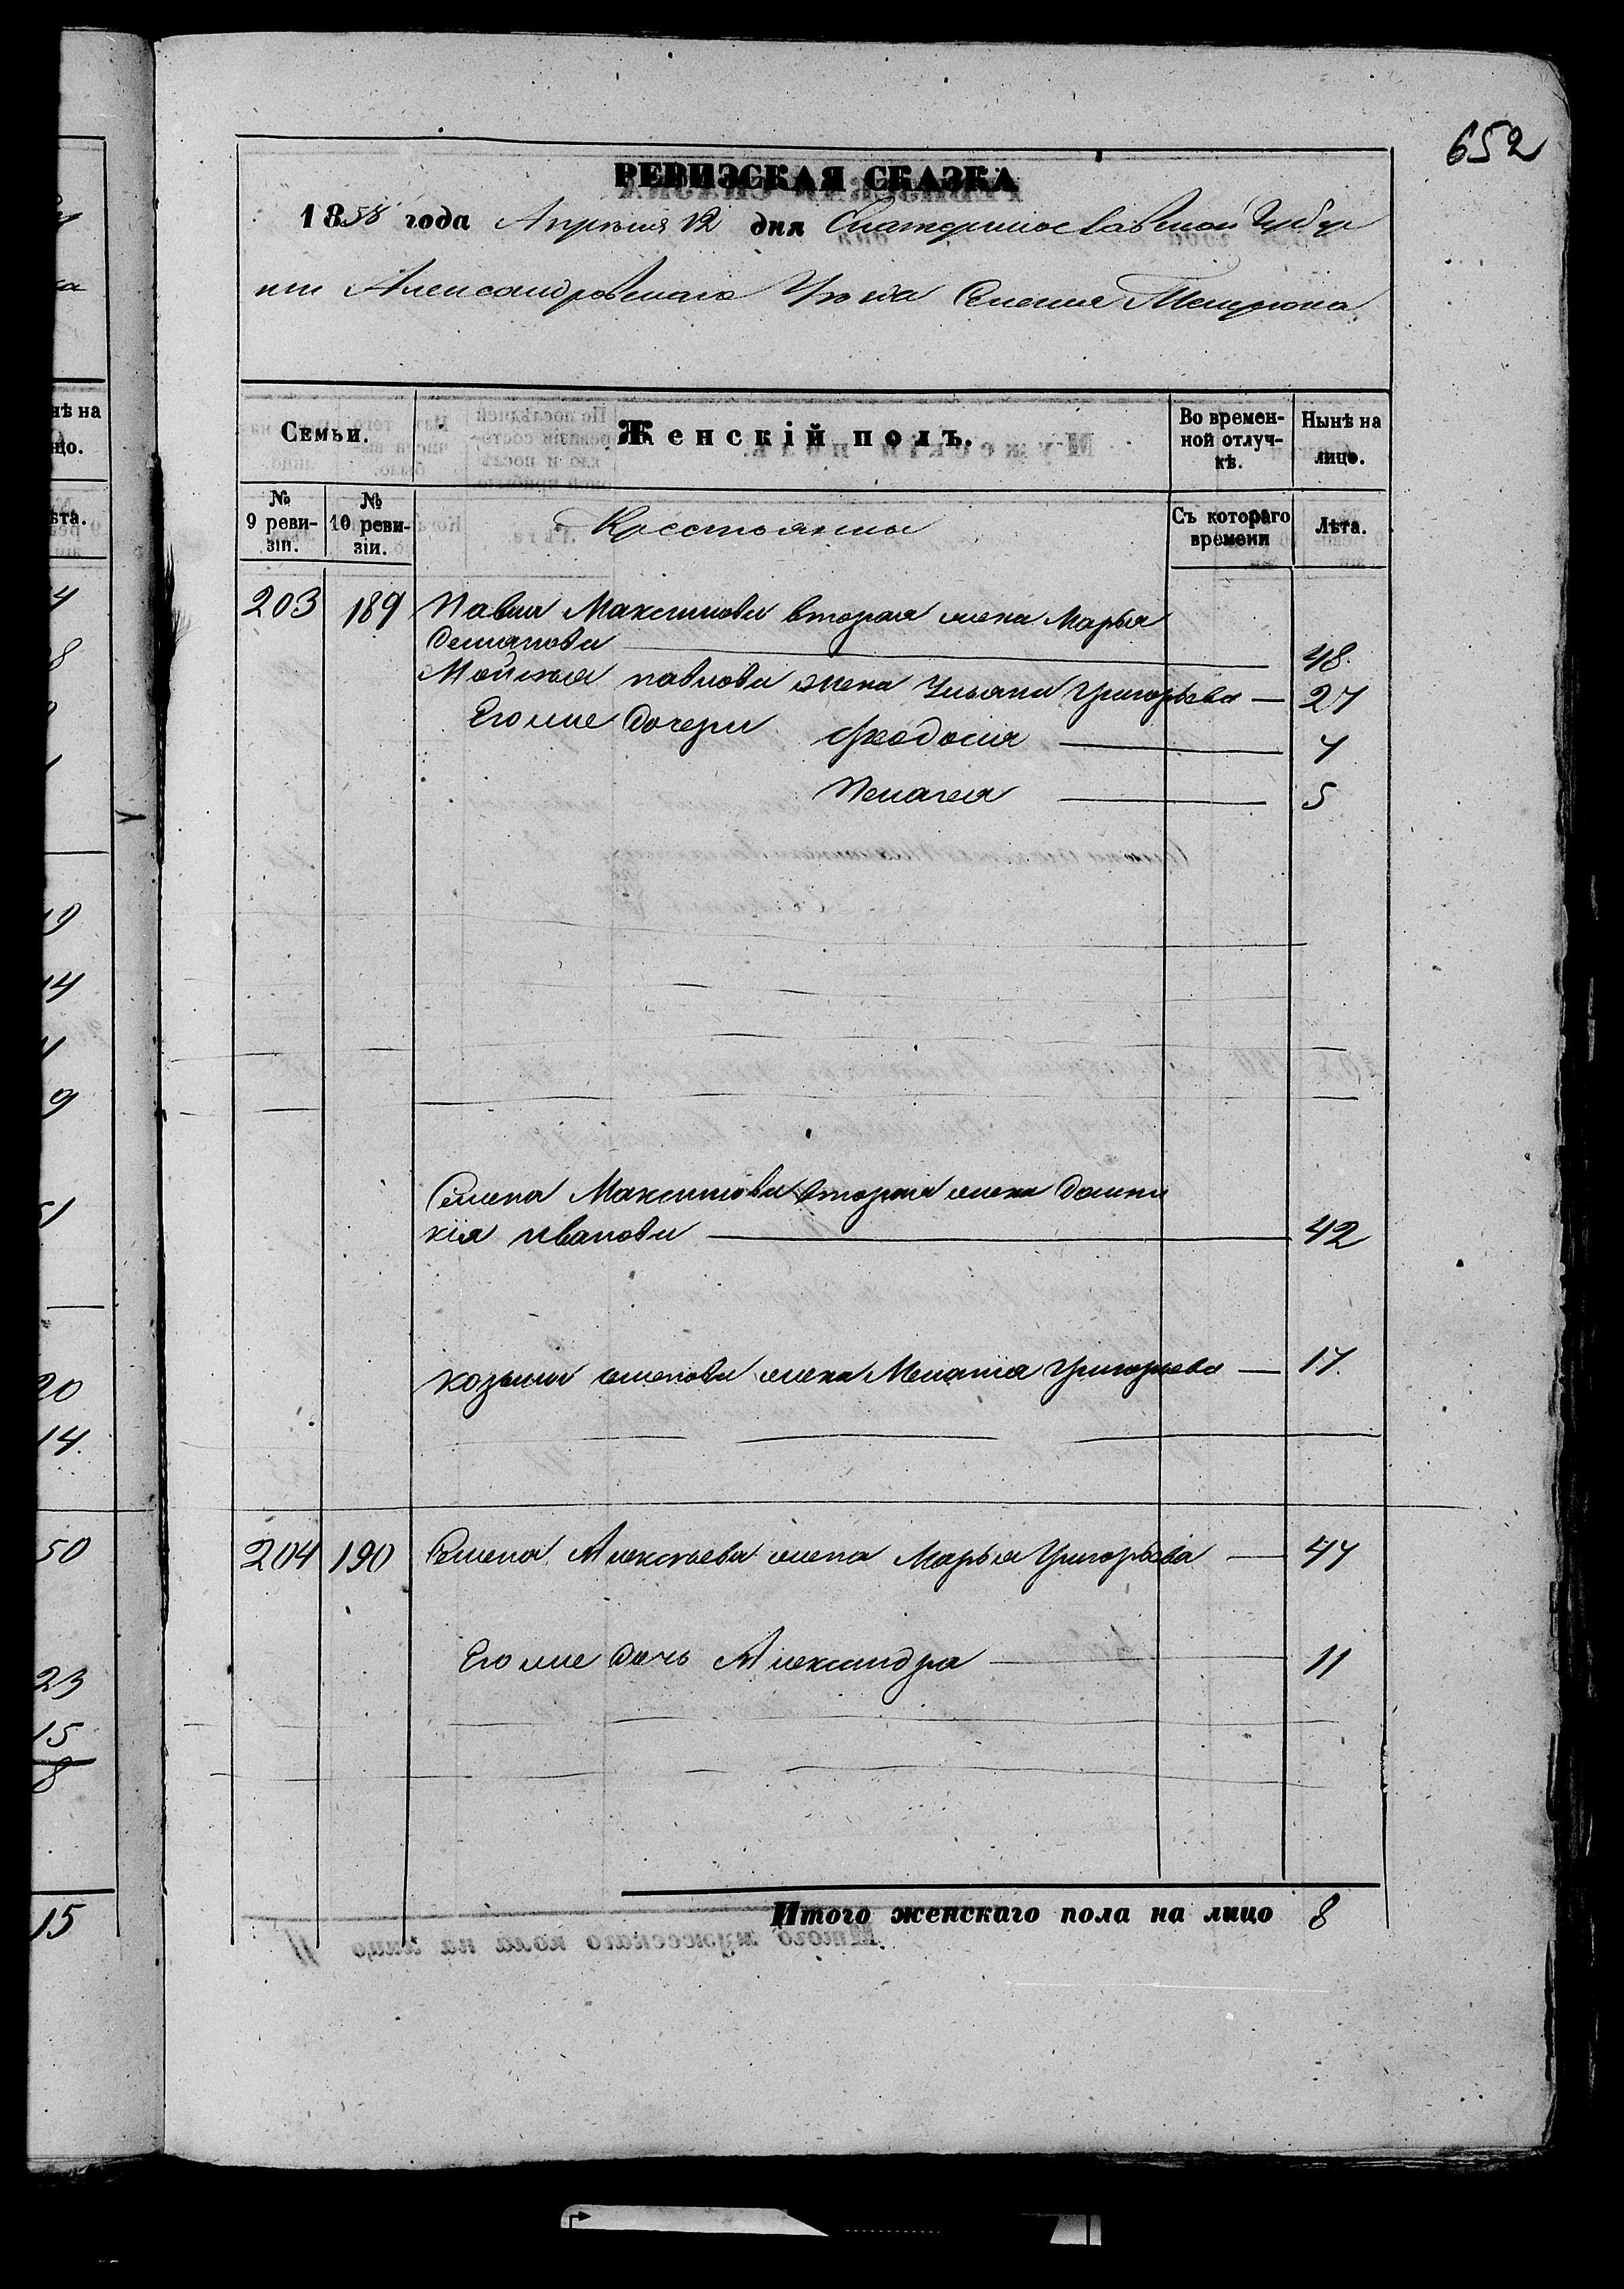 652
РЕВИЗСКАЯ СКАЗКА
1858 года Апреля 12 дня Екатеринославской Губер
нии Александровского Уезда Селения
Семьи.
Женскій полъ.
Во времен-
ной отлуч-
кѣ.
Нынѣ на
лицо.
№
9 реви-
зіи.
№
10 реви-
зіи.
Крестьянны
Съ котораго
времени
Лѣта.
203 189 Павла Максимова вторая жена Марья
Демянова 48.
Мойсея павлова жена Ульяна Григорьева 27
Его же дочери Феодосия 7
Пелагея 5
Семена Максимова вторая жена Домни
кія иванова 42
козьмы семенова жена Мелания Григорьева 17.
204 190 Семена Алексеева жена Марья Григорьева 47
Его же дочь Александра 11
Итого женскаго пола на лицо 8
нѣ на
цо.
ѣта.
4
8
19
14
9
51
20
14.
50
23
15
8
15
Итого мужескаго пола на лицо 11